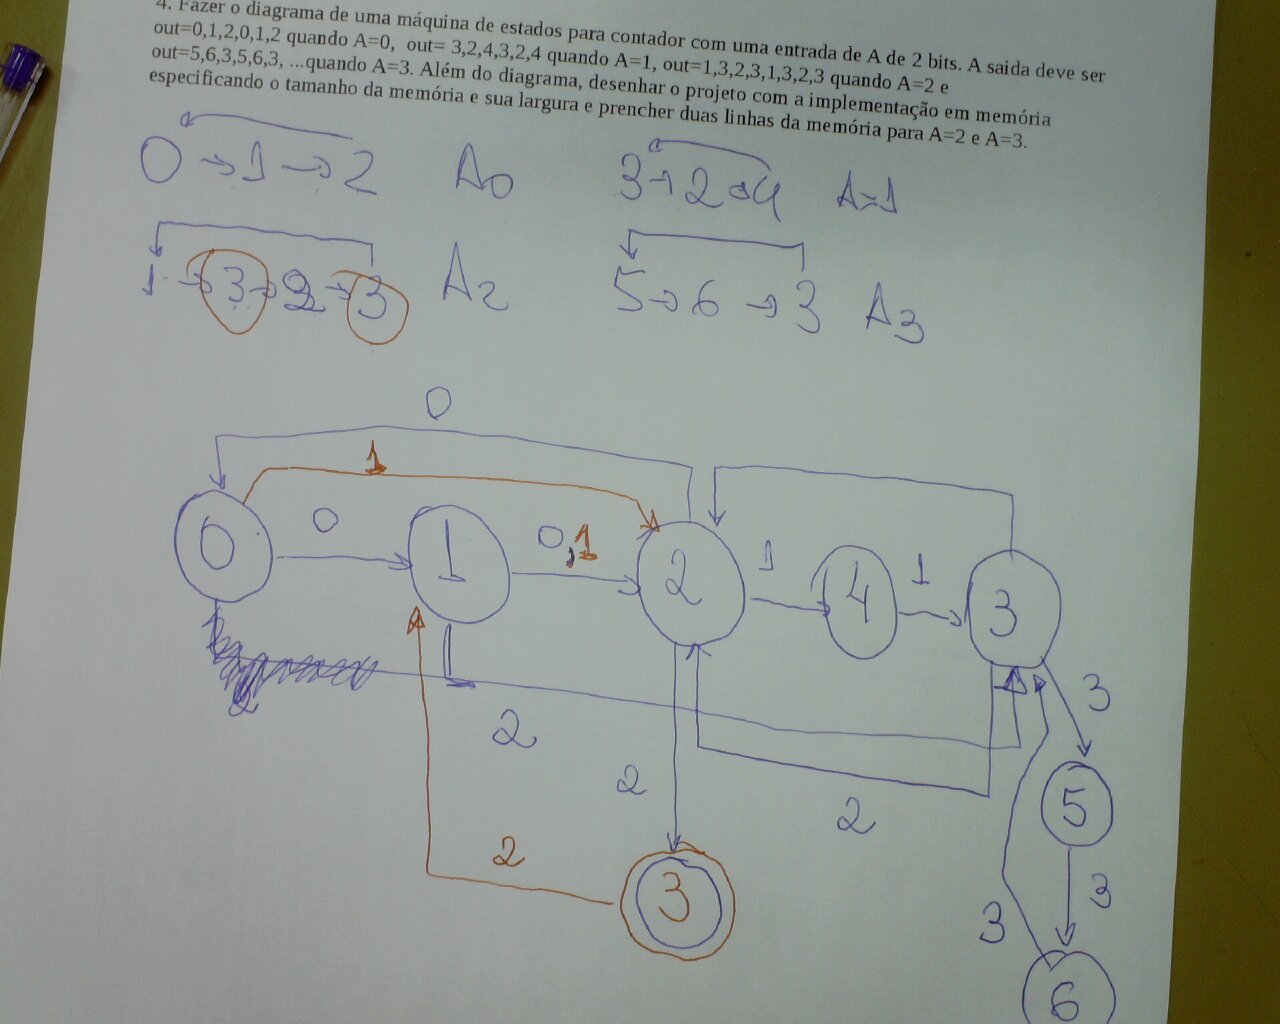 4. Fazer o diagrama de uma máquina de estados para contador com uma entrada de A de 2 bits. A saida deve ser
out=0,1,2,0,1,2 quando A=0, out= 3,2,4,3,2,4 quando A=1, out=1,3,2,3,1,3,2,3 quando A=2 e
out=5,6,3,5,6,3, ...quando A=3. Além do diagrama, desenhar o projeto com a implementação em memória
especificando o tamanho da memória e sua largura e prencher duas linhas da memória para A=2 e A=3.
0 → 1 → 2 A0 3 → 2 → 4 A=1
1 → 3 → 2 → 3 A2 5 → 6 → 3 A3
0
1
0 0 1 0,1 2 1 4 1 3
2 3
2 2 5
2 3 3
3 6